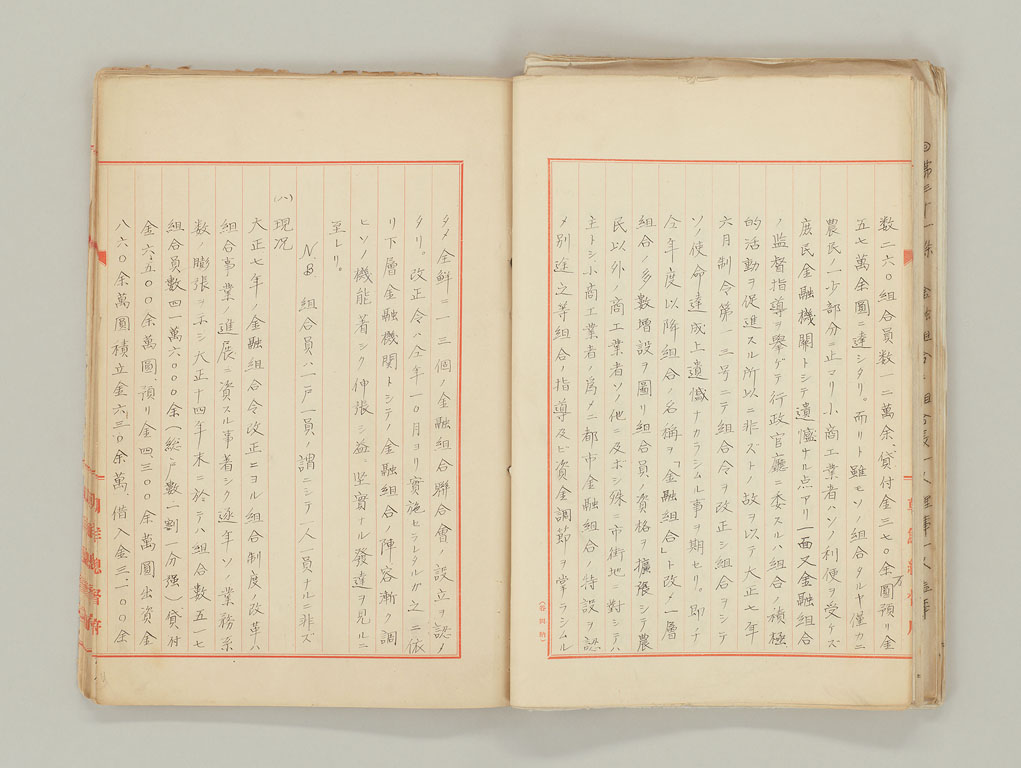 数二六〇組合員数一二萬余、貸付金三七〇余萬圓預リ金
五七萬余圓ニ達シタリ。而リト雖モソノ組合タルヤ僅カニ
農民ノ一少部分ニ止マリ小商工業者ハソノ利便ヲ受ケズ
庶民金融機關トシテ遺憾ナル点アリ一面又金融組合
ノ監督指導ヲ擧ゲテ行政官廳ニ委スルハ組合ノ積極
的活動ヲ促進スル所以ニ非ズトノ故ヲ以テ大正七年
六月制令第一三号ニテ組合令ヲ改正シ組合ヲシテ
ソノ使命達成上遺憾ナカラシムル事ヲ期セリ。即チ
仝年度以降組合ノ名稱ヲ「金融組合」ト改メ一層
組合ノ多数増設ヲ圖リ組合員ノ資格ヲ擴張シテ農
民以外ノ商工業者ソノ他ニ及ボシ殊ニ市街地ニ對シテハ
主トシ小商工業者ノ為メニ都市金融組合ノ特設ヲ認
メ別途之等組合ノ指導及ビ資金調節ヲ掌ラシムル
タメ全鮮ニ一三個ノ金融組合聯合會ノ設立ヲ認メ
タリ。改正令ハ仝年一〇月ヨリ實施セラレタルガ之ニ依
リ下層金融機関トシテノ金融組合ノ陣容漸ク調
ヒソノ機能著シク伸張シ益々堅實ナル發達ヲ見ルニ
至レリ。
N.B 組合員ハ一戸一員ノ謂ニシテ一人一員ナルニ非ズ
(ハ)
現况
大正七年ノ金融組合令改正ニヨル組合制度ノ改革ハ
組合事業ノ進展ニ資スル事著シク逐年ソノ業務系
数ノ膨張ヲ示シ大正十四年末ニ於テハ組合数五一七
組合員数四一萬六〇〇〇余(総戸数ノ一割一分強)貸付
金六、五〇〇余萬圓、預リ金四三〇〇余萬圓出資金
八六〇余萬圓積立金六三〇余萬借入金三一〇〇余